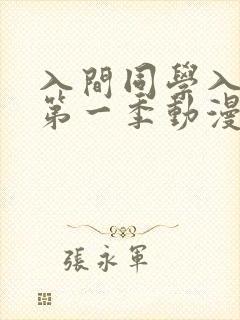 入間同學入
第一季動漫
張永軍